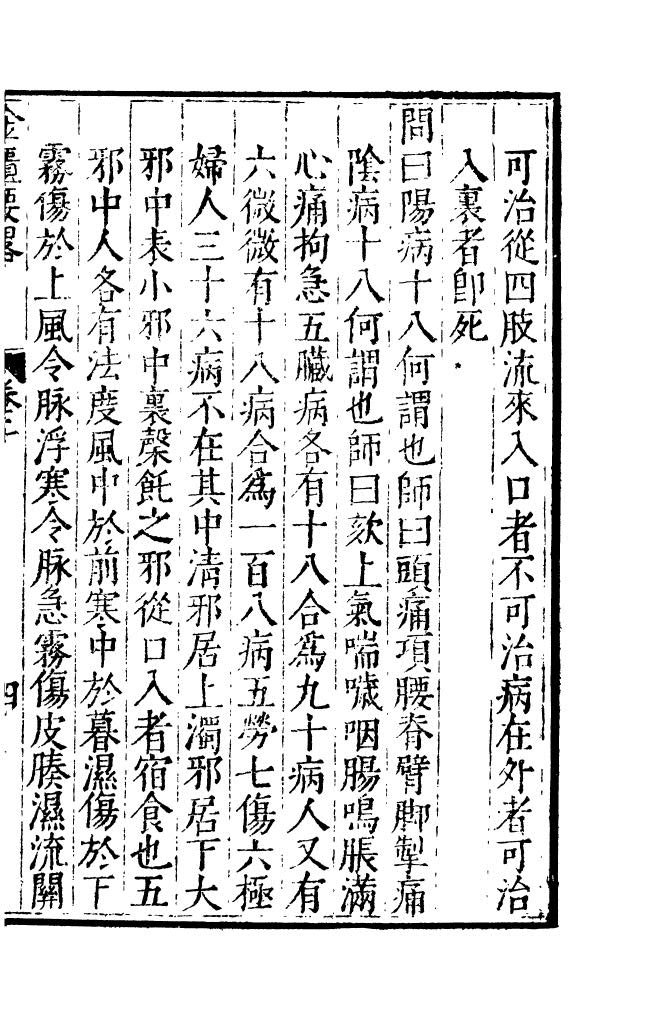 可治從四肢流來入口者不可治病在外者可治
入裏者即死
問曰陽病十八何謂也師曰頭痛項腰脊臂脚掣痛
陰病十八何謂也師曰欬上氣喘噦咽腸鳴脹滿
心痛拘急五臟病各有十八合為九十病人又有
六微微有十八病合為一百八病五勞七傷六極
婦人三十六病不在其中清邪居上濁邪居下大
邪中表小邪中裏䅽飥之邪從口入者宿食也五
邪中人各有法度風中於前寒中於暮濕傷於下
霧傷於上風令脉浮寒令脉急霧傷皮腠濕流關
金匱要略 卷上 四